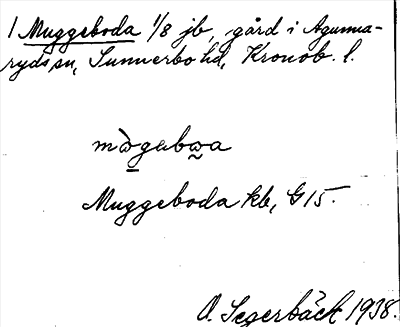 1 Muggeboda 1/8 jb, gård i Agunna-
ryds sn, Sunnerbo hd, Kronob. l.
Muggeboda kb, G 15.
O. Segerbäck 1938.